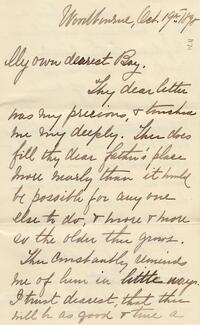 Woodbourne, Oct. 19th 18
My own dearest Bay.
Thy dear letter
was very precious, & touches
me very deeply. Thee does
fill thy dear father's place
more nearly than it would
be possible for any one
else to do, & more & more
so the older thee grows.
Thee constantly reminds
me of him in little ways.
I trust dearest, that thee
will be as good & true a